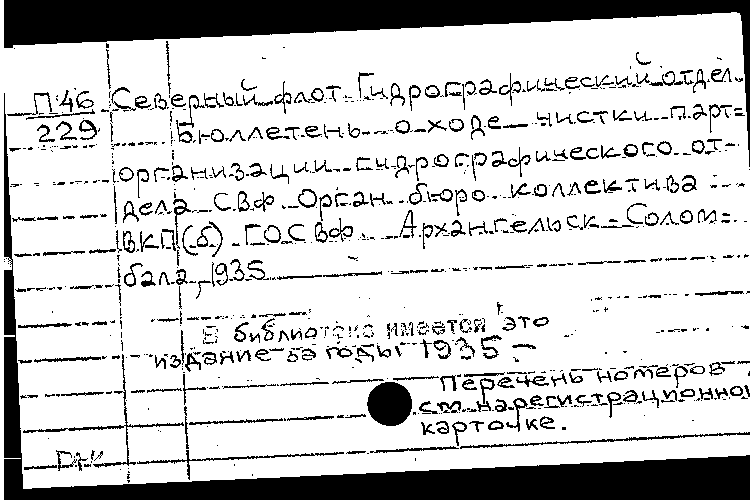 П46 Северный флот. Гидрографический отдел.
229 Бюллетень о ходе чистки парт=
организации гидрографического от-
дела СВФ. Орган бюро коллектива
ВКП(б) ГОСВФ. Архангельск-Солом=
бала, 1935
В библиотеке имеется это
издание за годы 1935 –
Перечень номеров
см. на регистрационной
карточке.